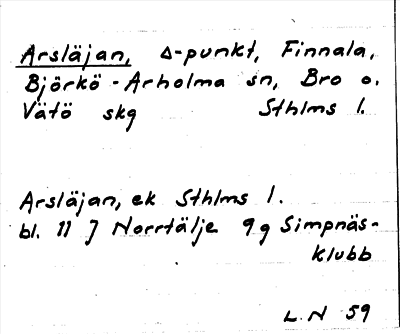 Arsläjan, Δ-punkt, Finnala,
Björkö - Arholma sn, Bro o.
Vätö skg Sthlms l.
Arsläjan, ek Sthlms l.
bl. 11 J Norrtälje 9g Simpnäs-
klubb
L. N 59